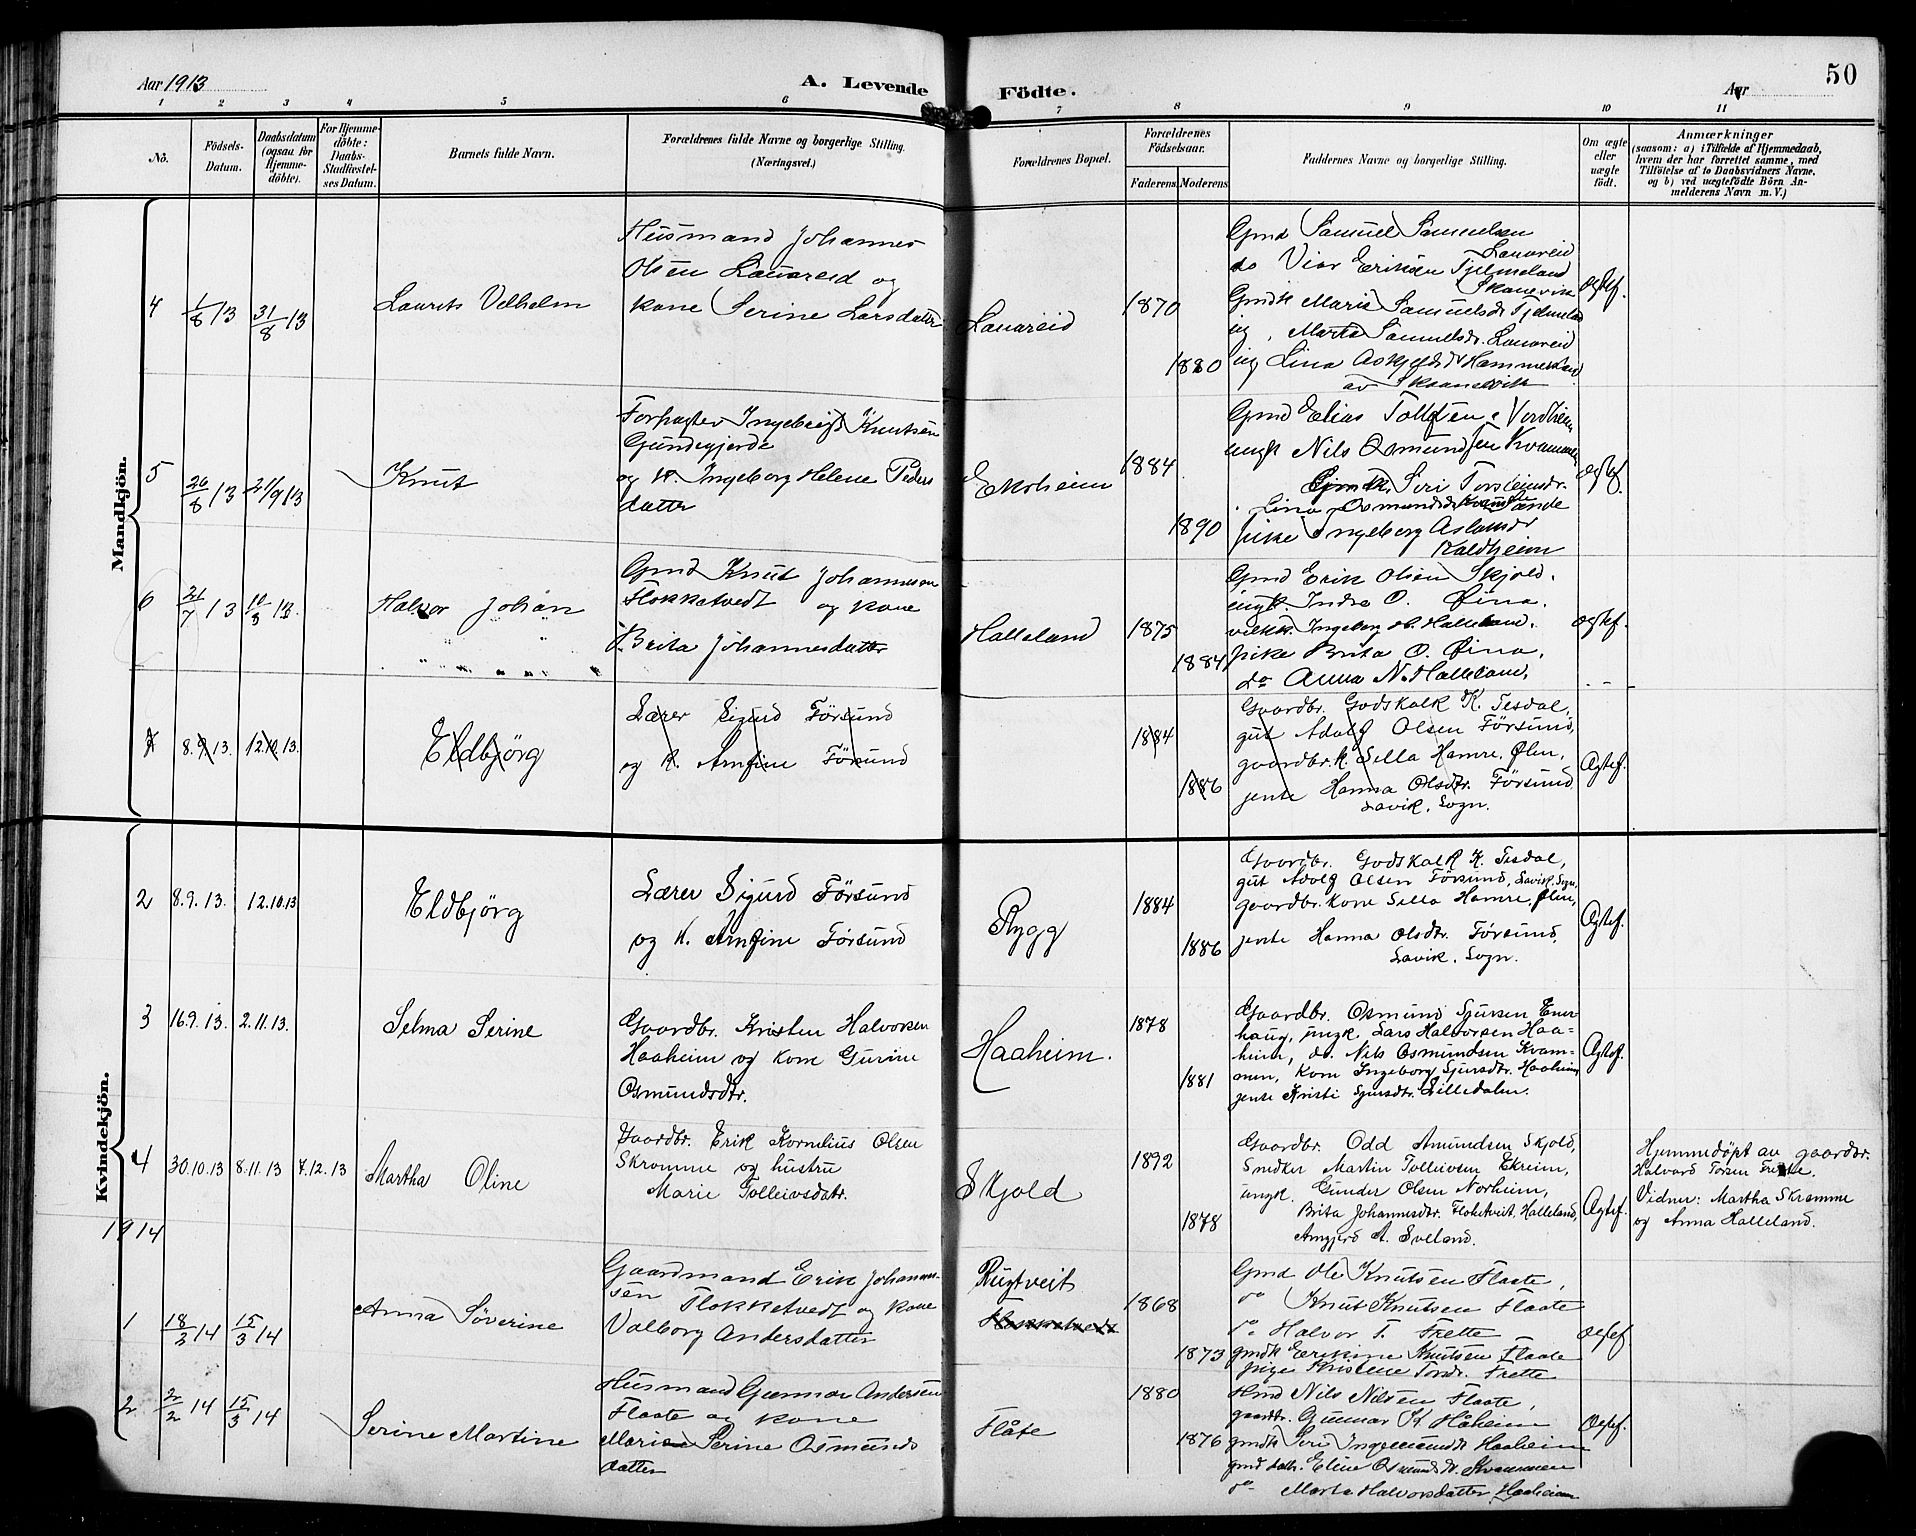 Aar 1913
A. Levende
Födte.
Aar
50
1 2 3 4 5 6 7 8 9 10 11
No.
Födsels-
Datum.
Daabsdatum
(ogsaa for
Hjemme-
döbte).
For Hjemme-
döbte:
Daabs-
Stadfæstel-
ses Datum.
Barnets fulde Navn.
Forældrenes fulde Navne og borgerlige Stilling.
(Næringsvei.)
Forældrenes Bopæl.
Forældrenes
Födselsaar.
Faderens.
Moderens.
Faddernes Navne og borgerlige Stilling.
Om ægte
eller
uægte
födt.
Anmærkninger
(saasom: a) i Tilfælde af Hjemmedaab,
hvem der har forrettet samme, med
Tilföielse af to Daabsvidners Navne,
og b) ved uægtefödte Börn An-
melderens Navn m. V.)
Mandkjön.
4
1/8 13
31/8 13
Laurits Vilhelm
Husmand Johannes
Olsen Lauareid og
kone Serine Larsdatter
Lauareid
1870
1880
Gmd Samuel Samuelsen
Lauareid
do Viar Eriksen Tjelmeland
Skanevik
Gmdk Marie Samuelsdr Tjelmeland
pig. Marta Samuelsdr. Lauareid
pig Lina Askjelsdr Hammersland
av Skaanevik
Ægtef.
5
26/8 13
21/9 13
Knut
Forpagter Ingebrigt Knutsen
Gundegjerde
og k. Ingeborg Helene Peders
datter
Ekrheim
1884
1890
Gmd Elias Tollefsen Nordheim
ungk Nils Osmundsen Kvammen
Gmdk. Siri Torsteinsdr.
Lina Osmundsdr Sande
pike Ingeborg Aslamdr
Kaldheim
Ægtef.
6
21/7 13
10/8 13.
Halvor Johan
Gmd Knut Johannesen
Flokketvedt og kone
Brita Johannesdatter
Halleland
1875
1884
Gmd Erik Olsen Skjold.
ungk. Indre O. Øina.
Ingeborg Halleland.
pike Brita O. Øina.
do Anna N. Halleland.
Ægtef.
8.9.13.
12.10.13.
Eldbjörg
Lærer Sigurd Försund
og k. Arnfine Försund
1884
1886
Gaardbr. Godskalk K. Tesdal,
gut Adolf Olsen Försund,
gaardbr.k. Sella Hamre, Ølen,
jente Hanna Olsdtr. Försund
Lavik, Sogn.
Ægtef.
Kvindekjön.
2
8.9.13.
12.10.13
Eldbjörg
Lærer Sigurd Försund
og k. Arnfine Försund
Rygg
1884
1886
Gaardbr. Godskalk K. Tesdal,
gut Adolf Olsen Försund, Lavik, Sogn,
gaardbr. kone Sella Hamre, Ølen,
jente Hanna Olsdtr. Försund,
Lavik, Sogn.
Ægtef.
3
16.9.13.
2.11.13.
Selma Serine
Gaardbr. Kristen Halvorsen
Haaheim og kone Gurine
Osmundsdtr.
Haaheim.
1878
1881
Gaardbr. Osmund Sjursen Ener-
haug, ungk. Lars Halvorsen Haa-
heim, do. Nils Osmundsen Kvam-
men, kone Ingeborg Sjursdtr. Haaheim
jente Kristi Sjursdtr. Lilledalen.
Ægtef.
4
30.10.13
8.11.13
7.12.13
Martha Oline
Gaardbr. Erik Kornelius Olsen
Skromme og hustru
Marie Tolleivsdatr.
Skjold
1892
1878
Gaardbr. Odd Amundsen Skjold,
Snedker Martin Tolleivsen Ekreim,
ungk. Gunder Olsen Norheim,
Brita Johannesdtr. Floketveit, Halleland,
Arngjerd A. Sveland.
Ægtef.
Hjemmedöpt av gaardbr.
Halvard Torsen Frette.
Vidner: Martha Skromme
og Anna Halleland.
1914
1
18/2 14
15/3 14
Anna Söverine
Gaardmand Erik Johannes-
sen Flokketvedt og kone
Valborg Andersdatter
Rugtveit
1868
1873
Gmd Ole Knutsen Flaate,
do Knut Knutsen Flaate
do Halvor T. Frette
gmdk Erikine Knutsen Flaate
pige Kristene Torsdr. Frette
Ægtef
2
2/2 14
15/3 14
Serine Martine
Husmand Gunnar Andersen
Flaate og kone
Marie Serine Osmunds
datter
Flåte
1880
1876
Hmd Nils Nilsen Flaate,
gaardbr. Gunnar K Håheim
gmdk Siri Ingemundsdr Haaheim
gmd datr. Eline Osmundsdr. Kvammen
do Marta Halvorsdatter Haaheim
Ægtef.